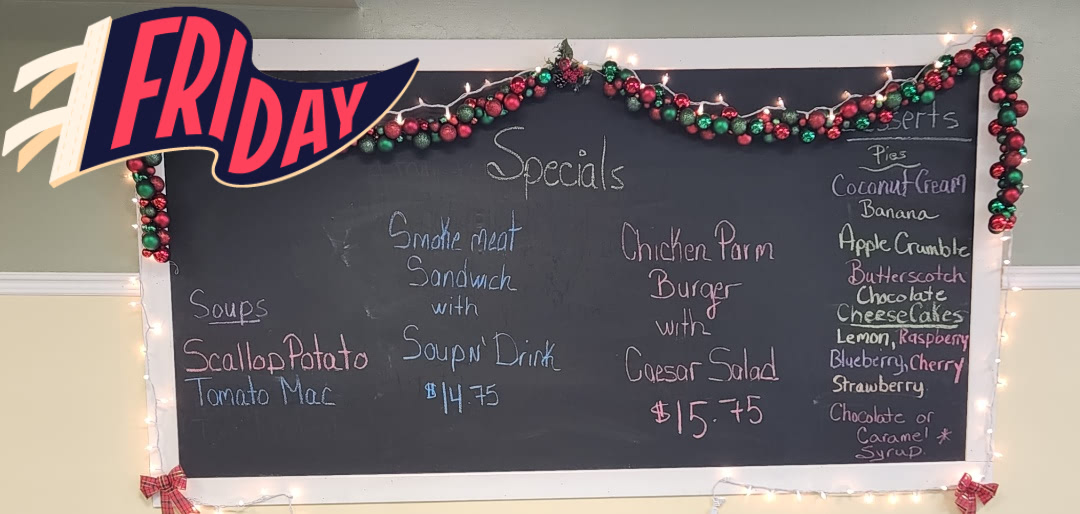 FRIDAY
Specials
Soups
Scallop Potato
Tomato Mac
Smoke meat
Sandwich
with
Soup N' Drink
$14.75
Chicken Parm
Burger
with
Caesar Salad
$15.75
Desserts
Pies
Coconut Cream
Banana
Apple Crumble
Butterscotch
Chocolate
CheeseCakes
Lemon, Raspberry
Blueberry, Cherry
Strawberry
Chocolate or
Caramel *
Syrup